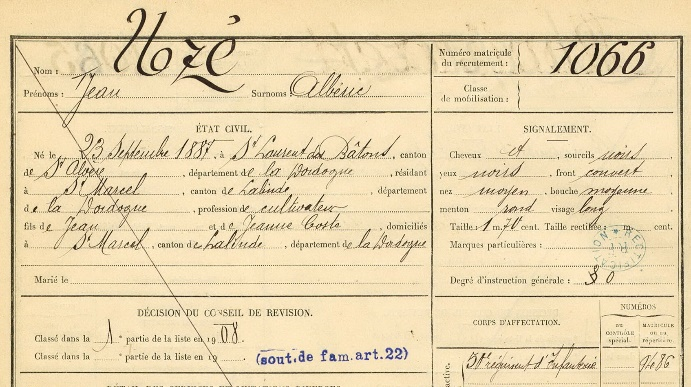 Nom : Uozé
Prénoms : Jean Surnoms : Albéric
Numéro matricule
du recrutement : 1066
Classe
de mobilisation :
ÉTAT CIVIL.
Né le 23 Septembre 1887, à St Laurent des Bâtons, canton
de St Alvère, département de la Dordogne, résidant
à St Marcel, canton de Lalinde, département
de la Dordogne, profession de cultivateur
fils de Jean et de Jeanne Coste, domiciliés
à St Marcel, canton de Lalinde, département de la Dordogne
Marié le
SIGNALEMENT.
Cheveux et, sourcils noirs,
yeux noirs, front couvert
nez moyen, bouche moyenne
menton rond visage long
Taille : 1 m. 70 cent. Taille rectifiée : m. cent.
Marques particulières :
RECTIFICATION
Degré d'instruction générale : 0
DÉCISION DU CONSEIL DE REVISION.
Classé dans la 1e partie de la liste en 1908.
Classé dans la e partie de la liste en 19
(sout. de fam. art. 22)
CORPS D'AFFECTATION.
NUMÉROS
DU CONTRÔLE spécial.
MATRICULE ou du répertoire.
50e régiment d'Infanterie